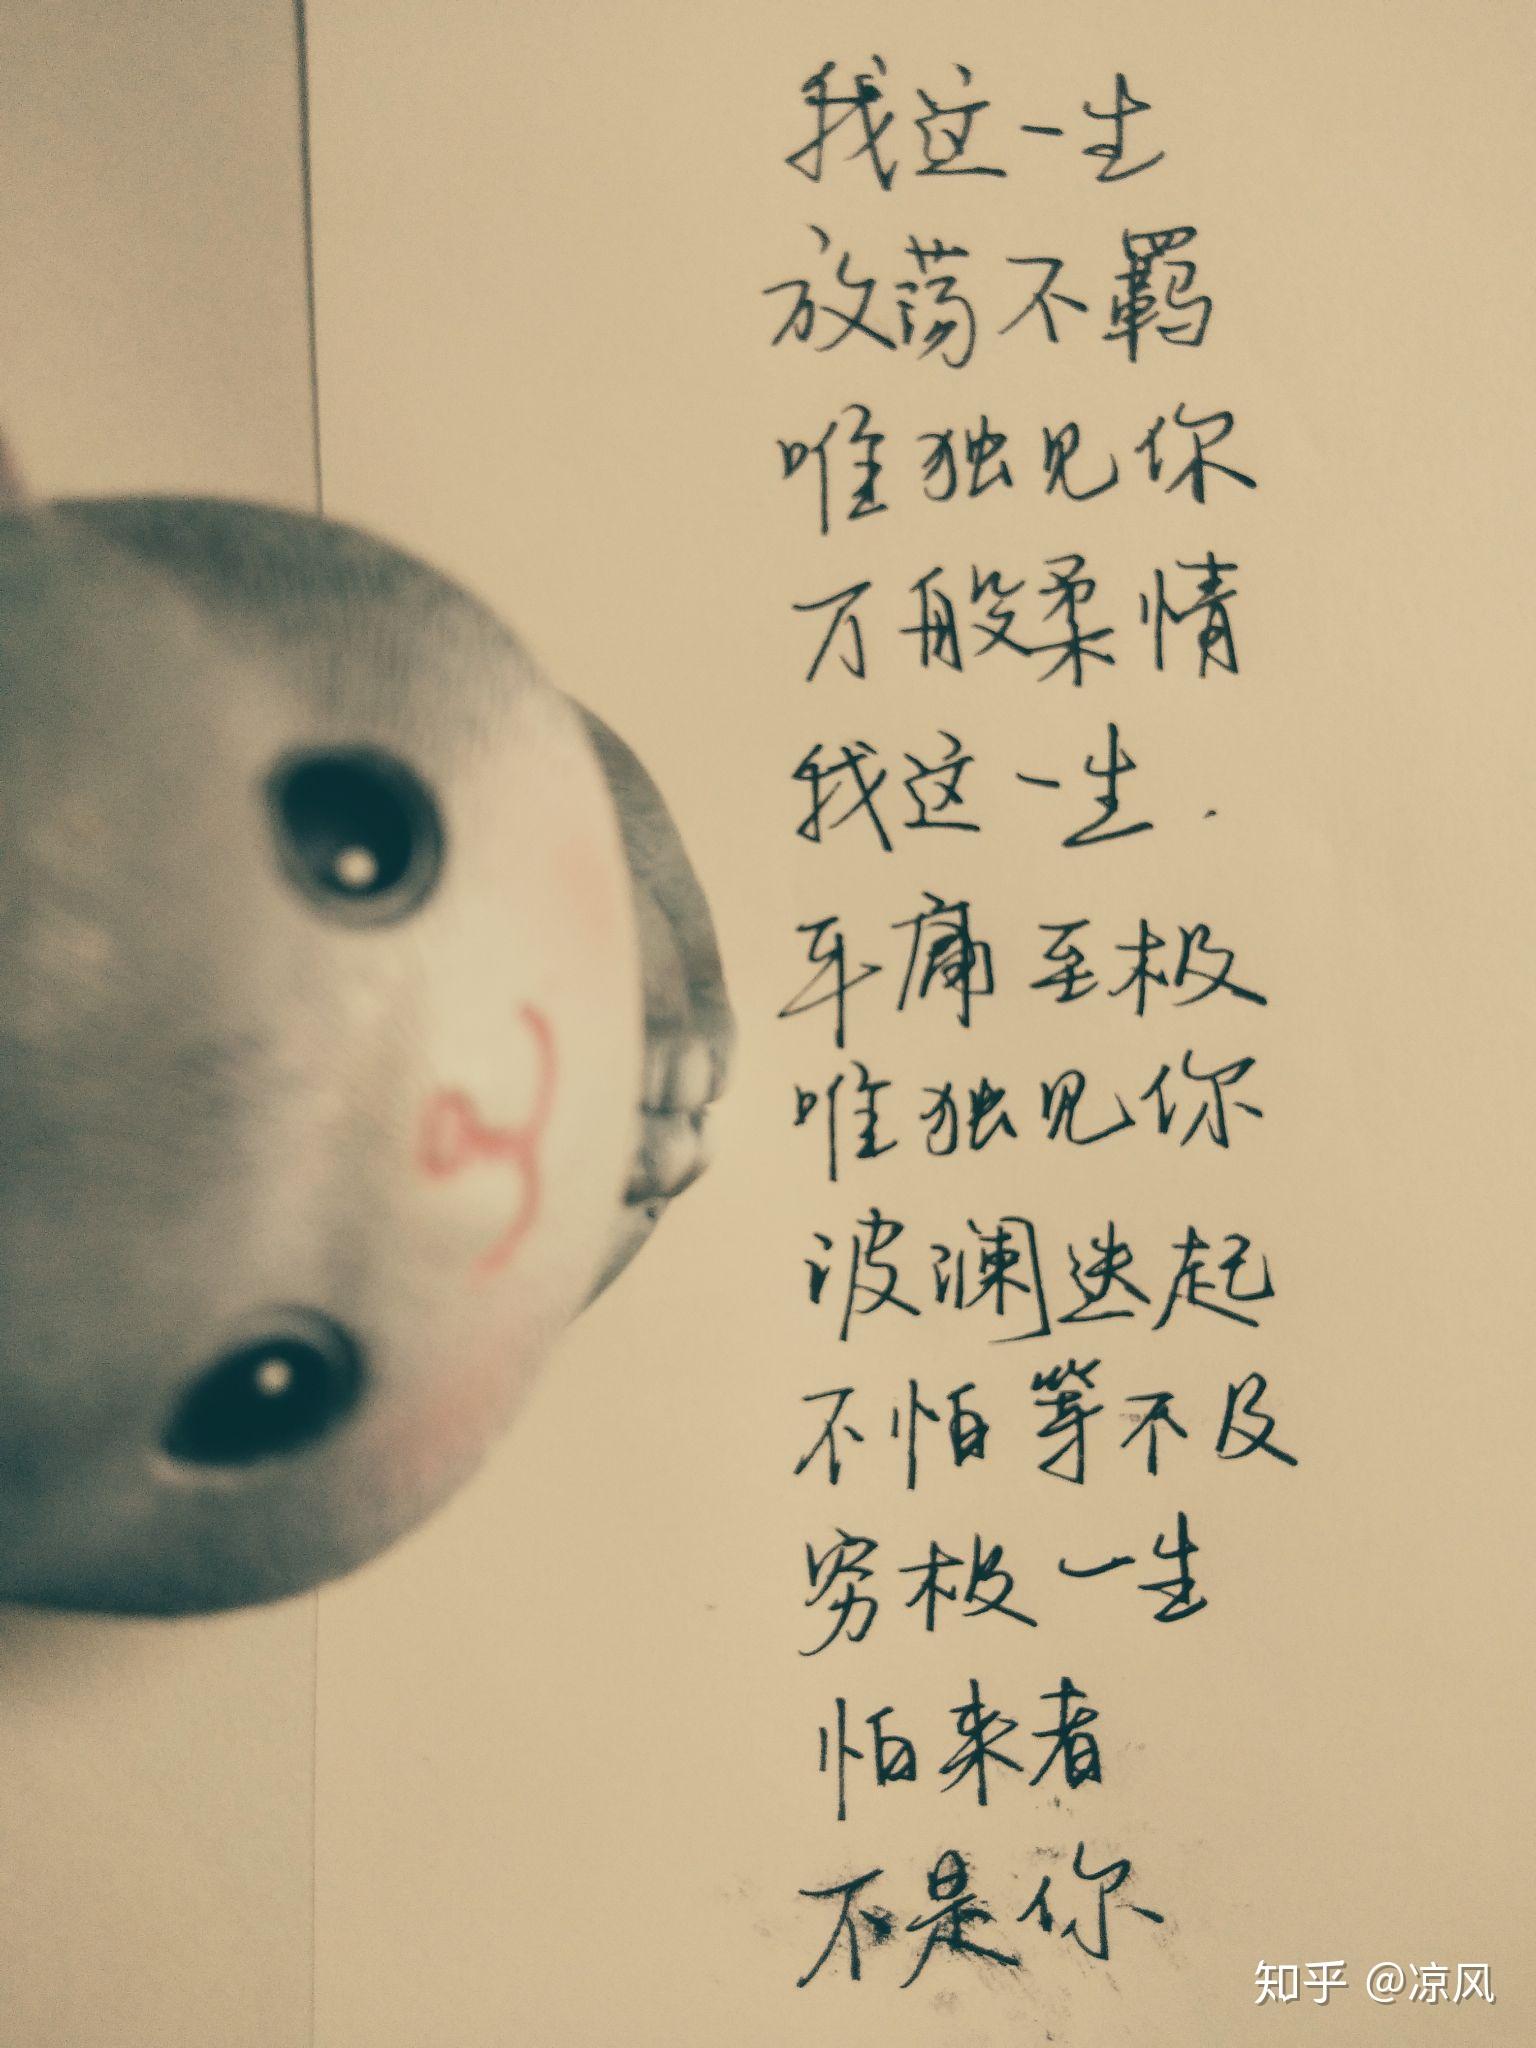 我这一生
放荡不羁
唯独见你
万般柔情
我这一生.
平庸至极
唯独见你
波澜迭起
不怕等不及
穷极一生
怕来者
不是你
知乎 @凉风